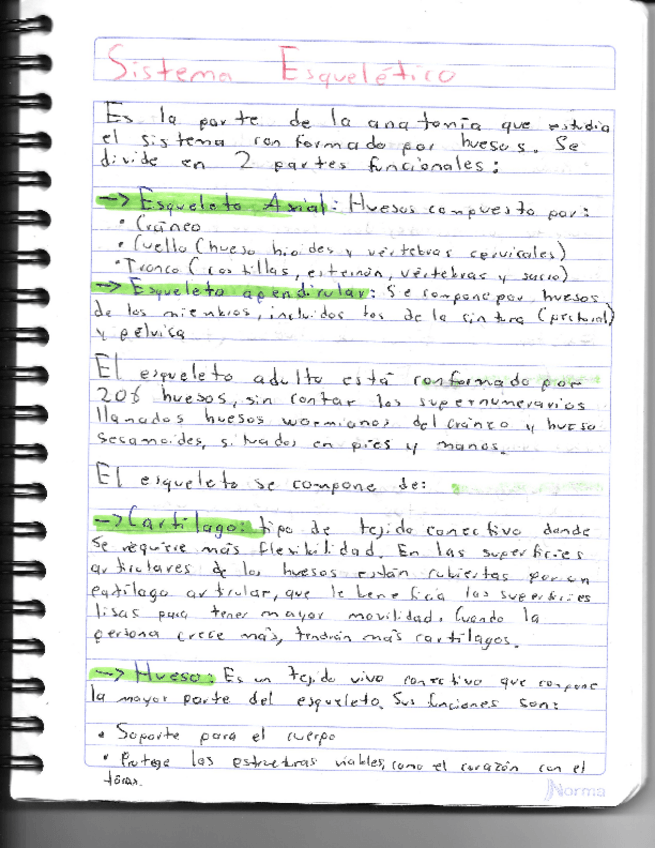 Sistema Esquelético
Es la parte de la anatomía que estudia
el sistema conformado por huesos. Se
divide en 2 partes funcionales:
-> Esqueleto Axial: Huesos compuesto por:
• Cráneo
• Cuello (hueso hioides y vértebras cervicales)
• Tronco (costillas, esternón, vértebras y sacro)
-> Esqueleto apendicular: Se compone por huesos
de los miembros, incluidos los de la cintura (pectoral)
y pelvica
El esqueleto adulto está conformado por
206 huesos, sin contar los supernumerarios
llamados huesos wormianos del cráneo y hueso
sesamoides, situados en pies y manos.
El esqueleto se compone de:
-> Cartílago: tipo de tejido conectivo donde
se requiere más flexibilidad. En las superficies
articulares de los huesos están cubiertas por un
cartílago articular, que le beneficia las superficies
lisas para tener mayor movilidad. Cuando la
persona crece más, tendrán más cartílagos.
-> Hueso: Es un tejido vivo conectivo que compone
la mayor parte del esqueleto. Sus funciones son:
• Soporte para el cuerpo
• Protege las estructuras viables, como el corazón con el
tórax.
Norma